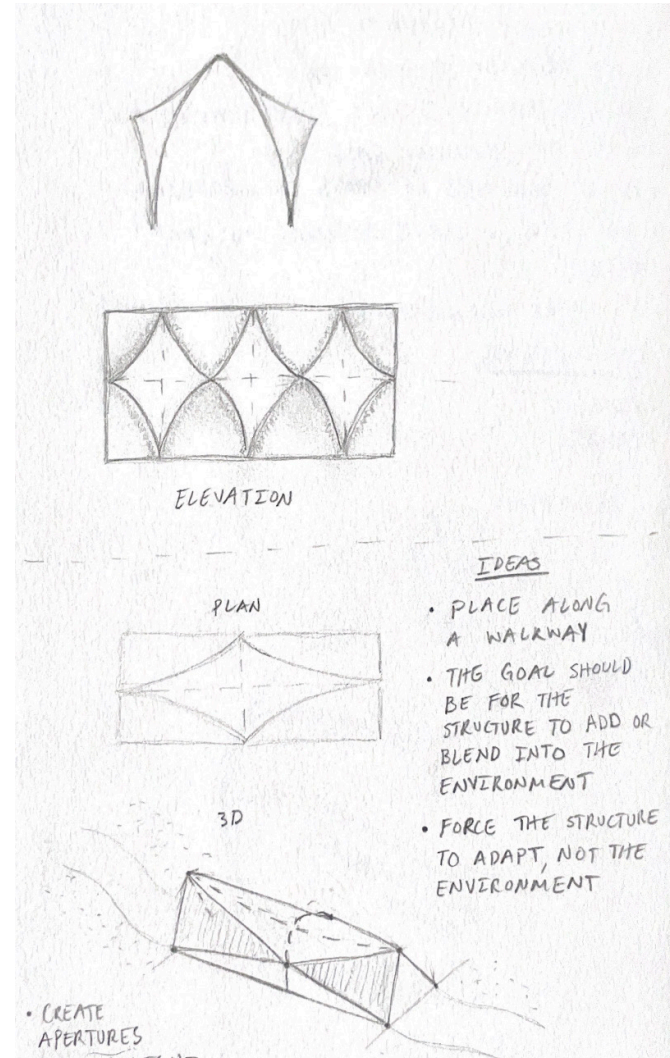 ELEVATION
IDEAS
PLAN
• PLACE ALONG
A WALKWAY
• THE GOAL SHOULD
BE FOR THE
STRUCTURE TO ADD OR
BLEND INTO THE
ENVIRONMENT
3D
• FORCE THE STRUCTURE
TO ADAPT, NOT THE
ENVIRONMENT
• CREATE
APERTURES